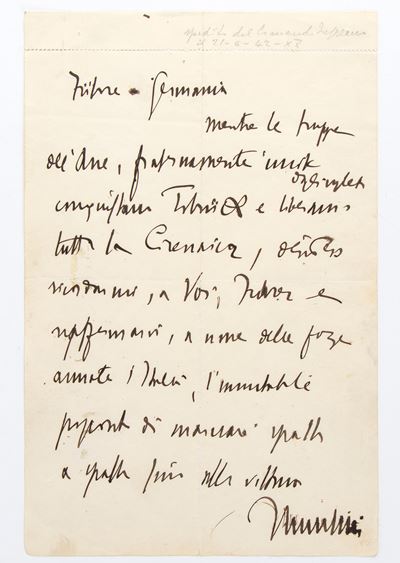 spedito dal Comando Supremo
il 21-6-42-XX
Führer - Germania
mentre le truppe
dell'Asse, fraternamente unite
conquistano Tobruk e liberano dagli inglesi
tutta la Cirenaica, desidero
a Voi, Führer e
riaffermarvi, a nome delle forze
armate d'Italia, l'immutabile
proposito di marciare spalla
a spalla fino alla vittoria
Mussolini